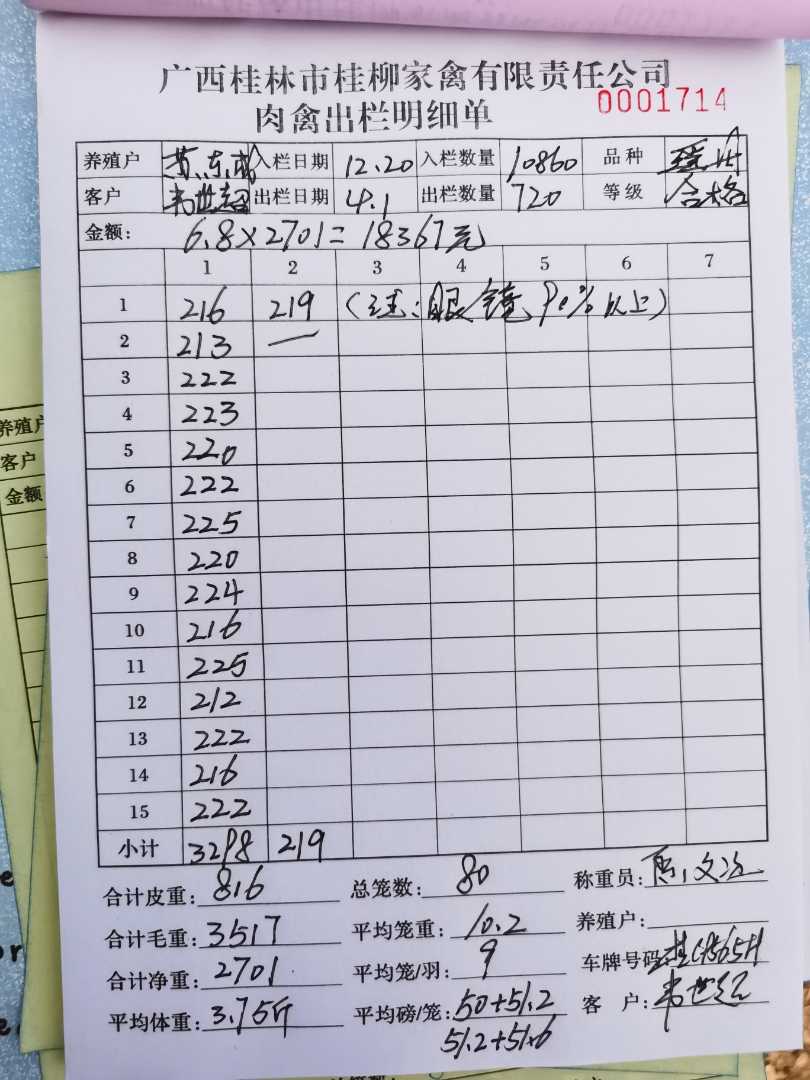 广西桂林市桂柳家禽有限责任公司
肉禽出栏明细单 0001714
养殖户 入栏日期 12.20 入栏数量 10860 品种
客户 韦世超 出栏日期 4.1 出栏数量 720 等级 合格
金额: 6.8×2701=18367元
1 2 3 4 5 6 7
1 216 219 (注:眼镜 90%以上)
2 213 —
3 222
4 223
5 220
6 222
7 225
8 220
9 224
10 216
11 225
12 212
13 222
14 216
15 222
小计 3298 219
合计皮重: 816 总笼数: 80 称重员:
合计毛重: 3517 平均笼重: 10.2 养殖户:
合计净重: 2701 平均笼/羽: 9 车牌号码:
平均体重: 3.75斤 平均磅/笼: 50+51.2 客 户: 韦世超
51.2+51.6
养殖户
客户
金额